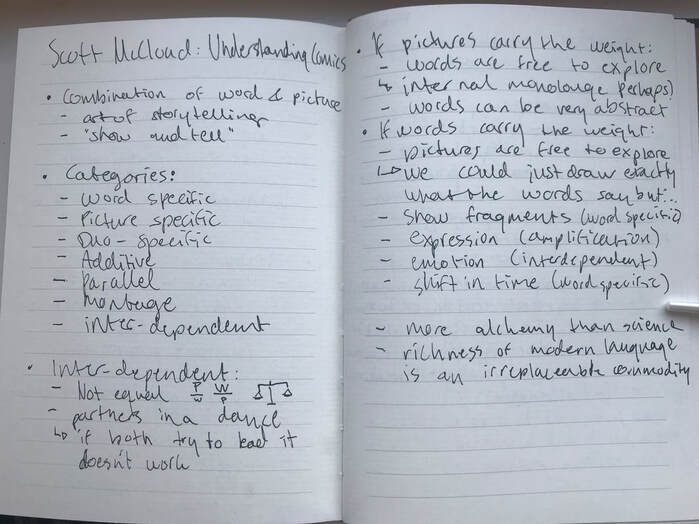 Scott McCloud: Understanding Comics
• Combination of word & picture
- art of storytelling
- "show and tell"
• Categories:
- Word specific
- Picture specific
- Duo-specific
- Additive
- Parallel
- Montage
- inter-dependent
• Inter-dependent:
- Not equal P/w W/P
- partners in a dance
↳ if both try to lead it
doesn't work
• If pictures carry the weight:
- words are free to explore
↳ internal monolouge perhaps)
- words can be very abstract
• If words carry the weight:
- pictures are free to explore
↳ we could just draw exactly
what the words say but...
- show fragments (word specific)
- expression (amplification)
- emotion (interdependent)
- shift in time (word specific)
- more alchemy than science
- richness of modern language
is an irreplaceable commodity